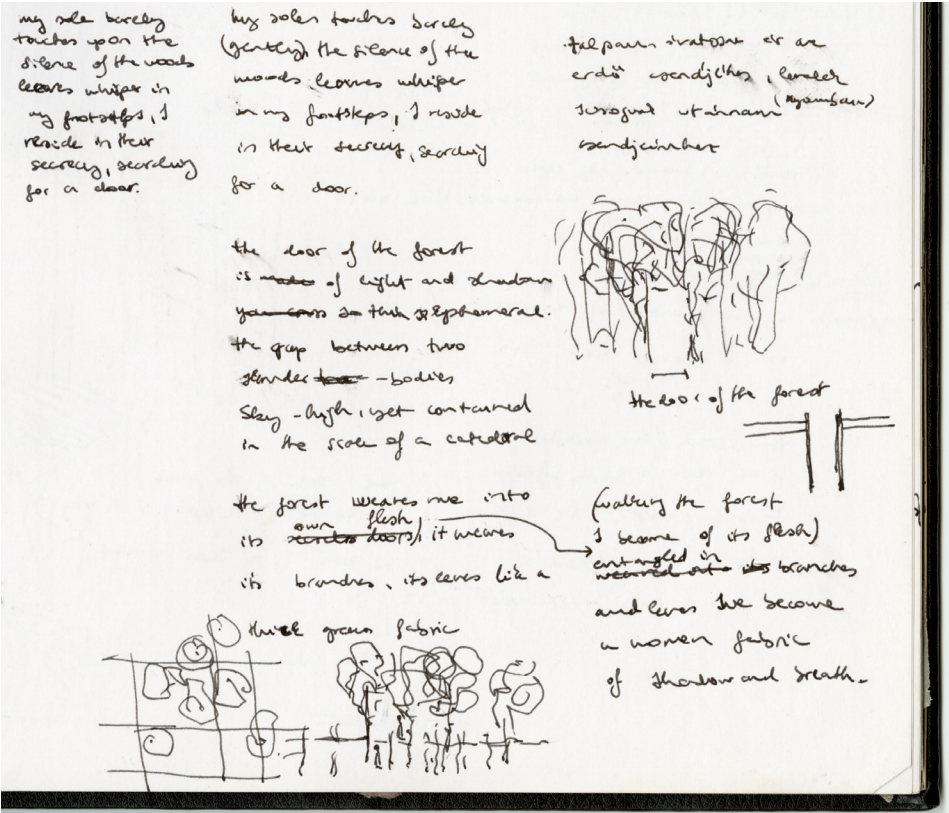 my sole barely
touches upon the
silence of the woods
leaves whisper in
my footsteps, I
reside in their
secrecy, searching
for a door.
my soles touches barely
(gently), the silence of the
woods. leaves whisper
in my footsteps, I reside
in their secrecy, searching
for a door.
the door of the forest
is made of light and shadow
so thin ephemeral.
the gap between two
slender -bodies
sky-high, yet contained
in the scale of a catedral
the forest weaves me into
own flesh
its secretes doors), it weaves
its branches, its leves like a
thick green fabric
talpam az
erdő csendjéhez, levelek
(nyomban)
suttognak utánam
csendjeimhez
the door of the forest
(walking the forest
I become of its flesh)
entangled in
its branches
and leves I've become
a women fabric
of shadow and breath.